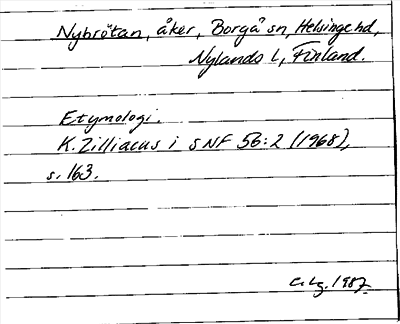 Nybrötan, åker, Borgå sn, Helsinge hd,
Nylands L, Finland.
Etymologi.
K. Zilliacus i SNF 56:2 (1968),
s. 163.
C. Lg. 1987.